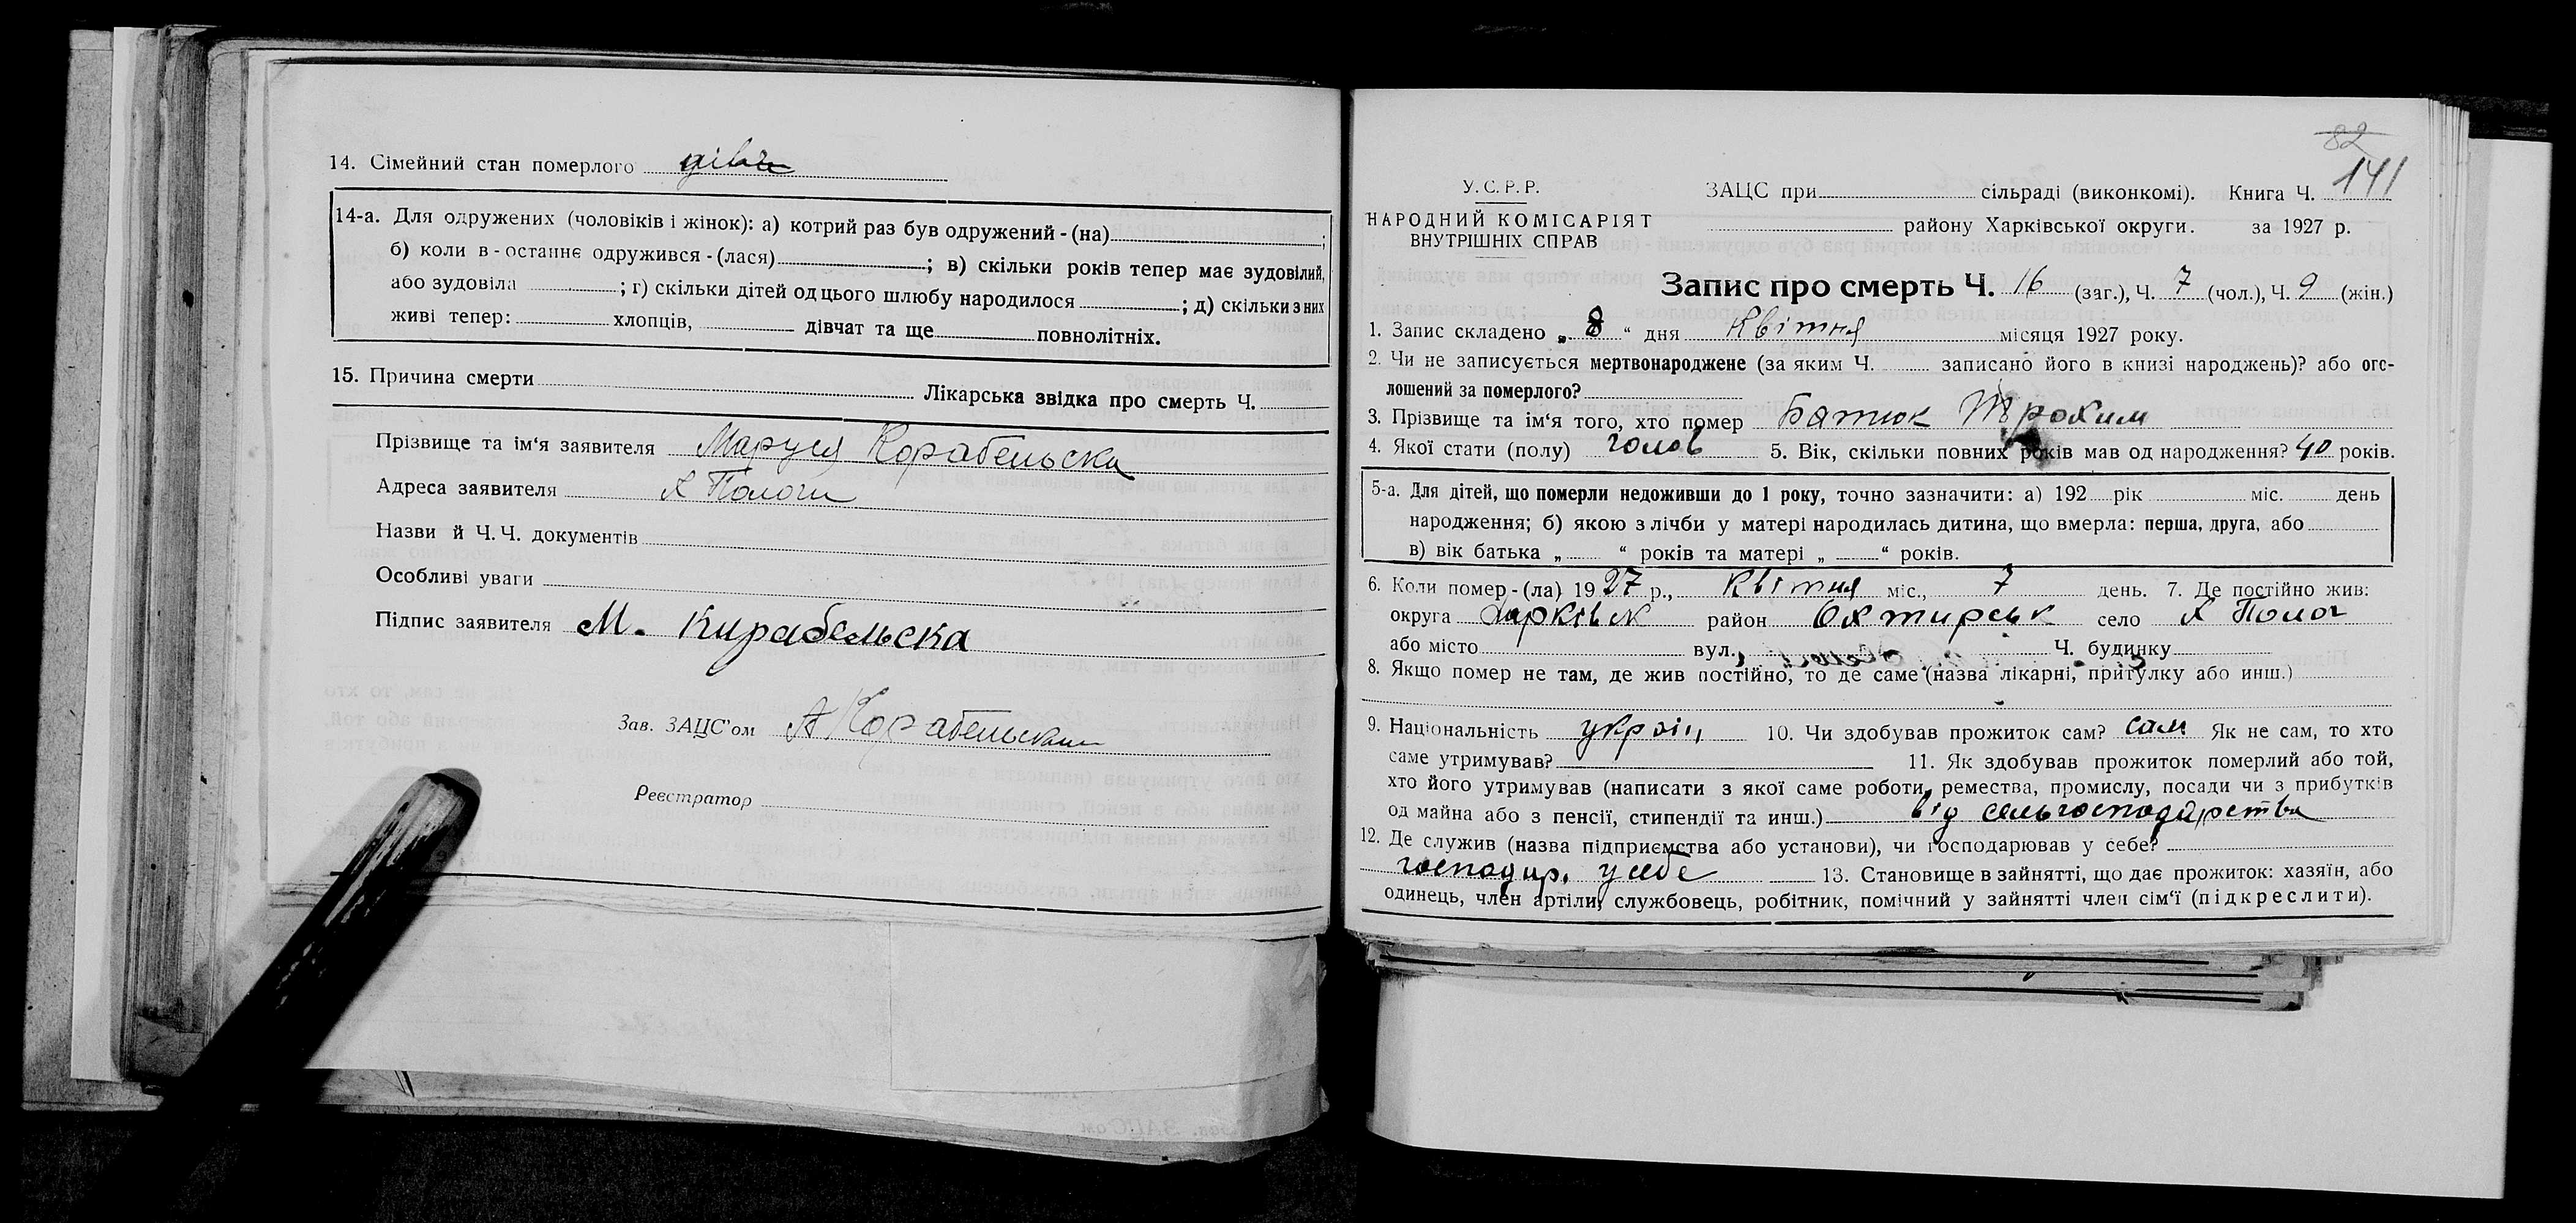 14. Сімейний стан померлого
14-а. Для одружених (чоловіків і жінок): а) котрий раз був одружений - (на) ;
б) коли в - останнє одружився - (лася) ; в) скільки років тепер має зудовілий,
або зудовіла ; г) скільки дітей од цього шлюбу народилося ; д) скільки з них
живі тепер: хлопців, дівчат та ще повнолітніх.
15. Причина смерти Лікарська звідка про смерть Ч.
Прізвище та ім'я заявителя Маруся Корабельска
Адреса заявителя Х Пологи
Назви й Ч. Ч. документів
Особливі уваги
Підпис заявителя М. Кирабельска
Зав. ЗАЦС'ом А Корабельский
Реєстратор
82
141
У. С. Р. Р.
НАРОДНИЙ КОМІСАРІЯТ
ВНУТРІШНІХ СПРАВ
ЗАЦС при сільраді (виконкомі). Книга Ч.
району Харківської округи. за 1927 р.
Запис про смерть Ч. 16 (заг.), Ч. 7 (чол.), Ч. 9 (жін.)
1. Запис складено „ 8 “ дня Квітня місяця 1927 року.
2. Чи не записується мертвонароджене (за яким Ч. записано його в книзі народжень)? або ого-
лошений за померлого?
3. Прізвище та ім'я того, хто помер Батюк Трохим
4. Якої стати (полу) 5. Вік, скільки повних років мав од народження? 40 років.
5-а. Для дітей, що померли недоживши до 1 року, точно зазначити: а) 192 рік міс. день
народження; б) якою з лічби у матері народилась дитина, що вмерла: перша, друга, або
в) вік батька „ “ років та матері „ “ років.
6. Коли помер - (ла) 1927 р., Квітня міс., 7 день. 7. Де постійно жив:
округа Харківськ район Охтирськ село Х Полог
або місто вул. Ч. будинку
8. Якщо помер не там, де жив постійно, то де саме (назва лікарні, притулку або инш.)
9. Національність україн 10. Чи здобував прожиток сам? сам Як не сам, то хто
саме утримував? 11. Як здобував прожиток померлий або той,
хто його утримував (написати з якої саме роботи, ремества, промислу, посади чи з прибутків
од майна або з пенсії, стипендії та инш.) від сельгосподарства
12. Де служив (назва підприємства або установи), чи господарював у себе?
господар. у себе 13. Становище в зайнятті, що дає прожиток: хазяїн, або
одинець, член артіли, службовець, робітник, помічний у зайнятті член сім'ї (підкреслити).